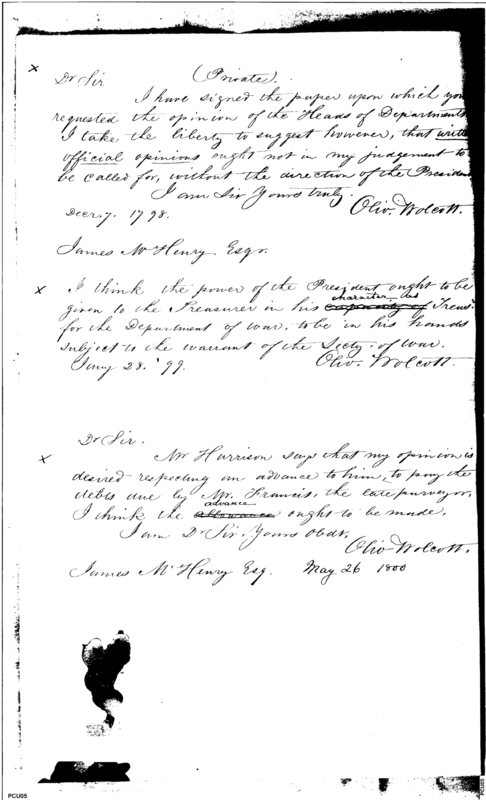 x
Dr Sir (Private).
I have signed the paper upon which you
requested the opinion of the Heads of Departments
I take the liberty to suggest however, that
official opinions ought not in my judgement to
be called for, without the direction of the President
I am Sir Yours truly.
Decr 7. 1798. Oliv. Wolcott.
James McHenry Esqr.
x I think the power of the President ought to be
character as
given to the Treasurer in his capacity of Treasr
for the Department of war, to be in his hands
subject to the warrant of the Secty. of War.
Jany 28. '99. Oliv. Wolcott.
Dr Sir.
x Mr Harrison says that my opinion is
desired respecting an advance to him, to pay the
debts due by Mr. Francis, the late purveyor,
advance
I think the allowance ought to be made.
I am Dr Sir. Yours Obdt.
Oliv Wolcott.
James McHenry Esq. May 26 1800
PCU05
PCU05